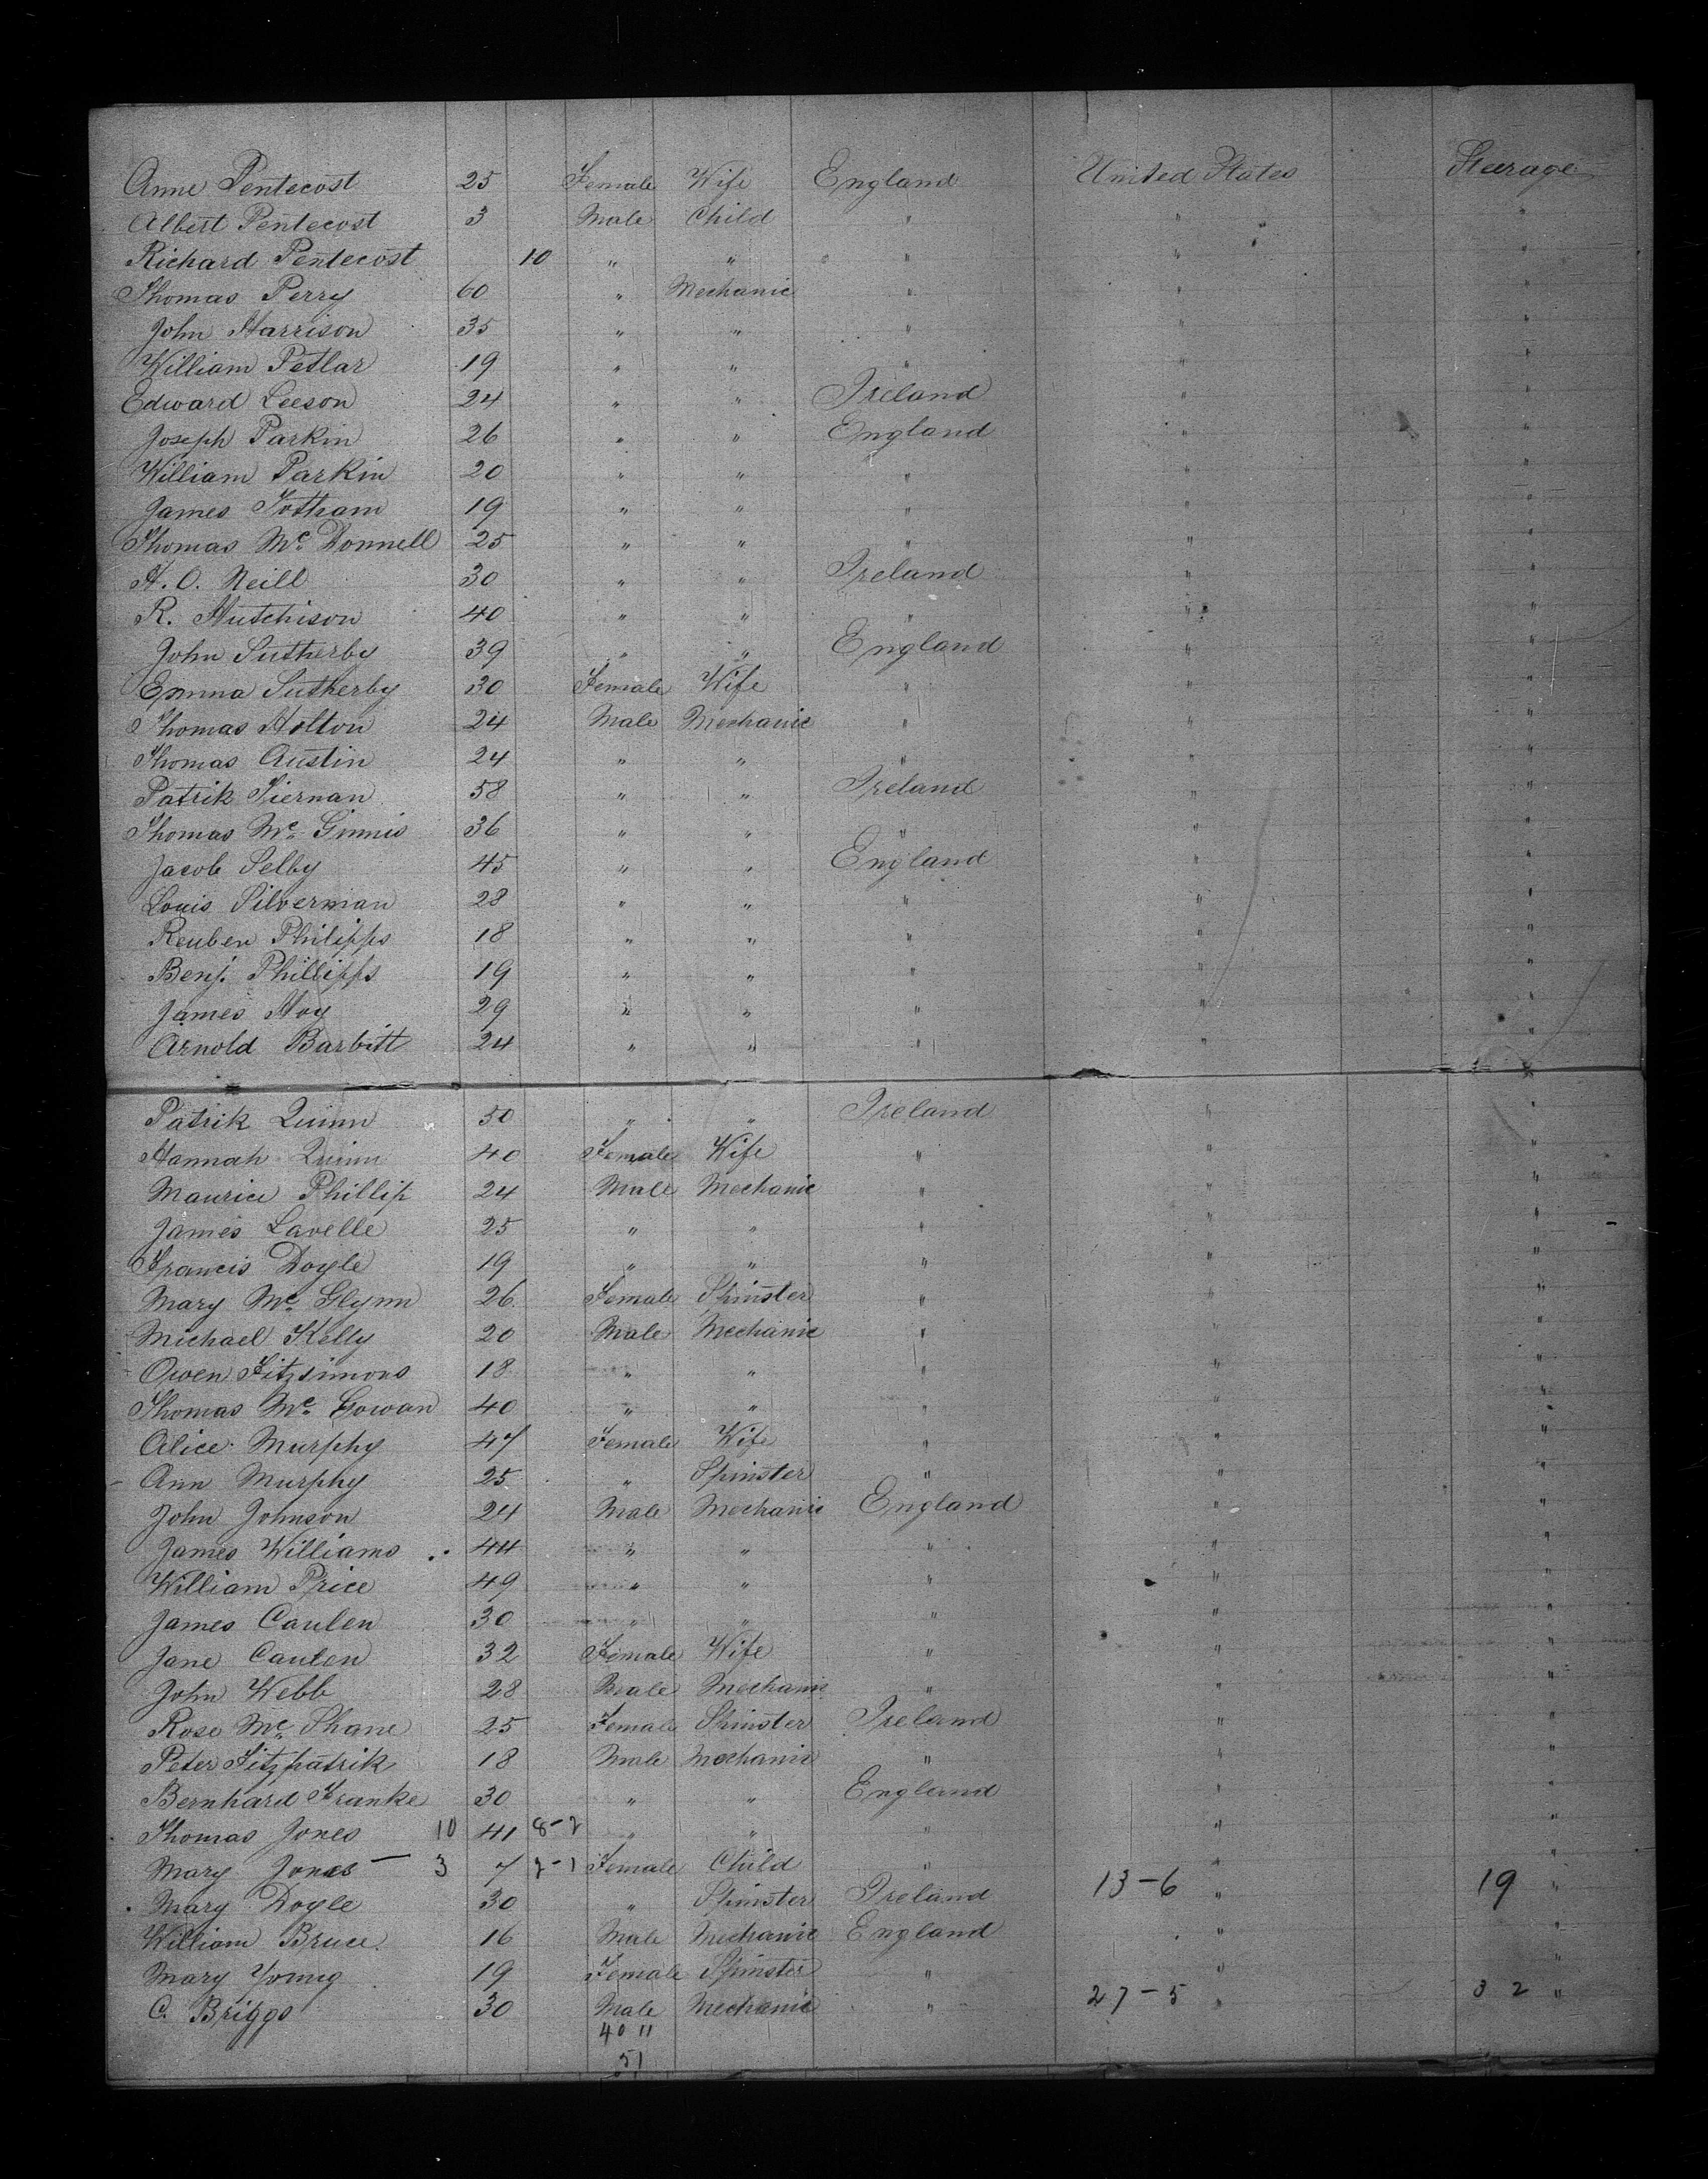 Anne Pentecost 25 Female Wife England United States Steerage
Albert Pentecost 3 Male Child " " "
Richard Pentecost 10 " " " " "
Thomas Perry 60 " Mechanic " " "
John Harrison 35 " " " " "
William Petlar 19 " " " " "
Edward Leeson 24 " " Ireland " "
Joseph Parkin 26 " " England " "
William Parkin 20 " " " " "
James Totham 19 " " " " "
Thomas Mc Donnell 25 " " " " "
H. O. Neill 30 " " Ireland " "
R. Hutchison 40 " " " " "
John Sutherby 39 " " England " "
Emma Sutherby 30 Female Wife " " "
Thomas Holton 24 Male Mechanic " " "
Thomas Austin 24 " " " " "
Patrik Tiernan 58 " " Ireland " "
Thomas Mc Ginnis 36 " " " " "
Jacob Selby 45 " " England " "
Louis Silverman 28 " " " " "
Reuben Philipps 18 " " " " "
Benj. Phillipps 19 " " " " "
James Hoy 29 " " " " "
Arnold Barbitt 24 " " " " "
Patrik Quinn 50 " " Ireland " "
Hannah Quinn 40 Female Wife " " "
Maurice Phillip 24 Male Mechanic " " "
James Lavelle 25 " " " " "
Francis Doyle 19 " " " " "
Mary Mc Glynn 26 Female Spinster " " "
Michael Kelly 20 Male Mechanic " " "
Owen Fitzsimons 18 " " " " "
Thomas Mc Gowan 40 " " " " "
Alice Murphy 47 Female Wife " " "
Ann Murphy 25 " Spinster " " "
John Johnson 24 Male Mechanic England " "
James Williams 44 " " " " "
William Price 49 " " " " "
James Caulen 30 " " " " "
Jane Caulen 32 Female Wife " " "
John Webb 28 Male Mechanic " " "
Rose Mc Shane 25 Female Spinster Ireland " "
Peter Fitzpatrik 18 Male Mechanic " " "
Bernhard Franke 30 " " England " "
Thomas Jones 10 41 8-2 " " " " "
Mary Jones 3 7 2-1 Female Child " " "
Mary Doyle 30 " Spinster Ireland 13-6 " 19 "
William Bruce 16 Male Mechanic England " "
Mary Young 19 Female Spinster " " "
C. Briggs 30 Male Mechanic " 27-5 " 32 "
40 11
51